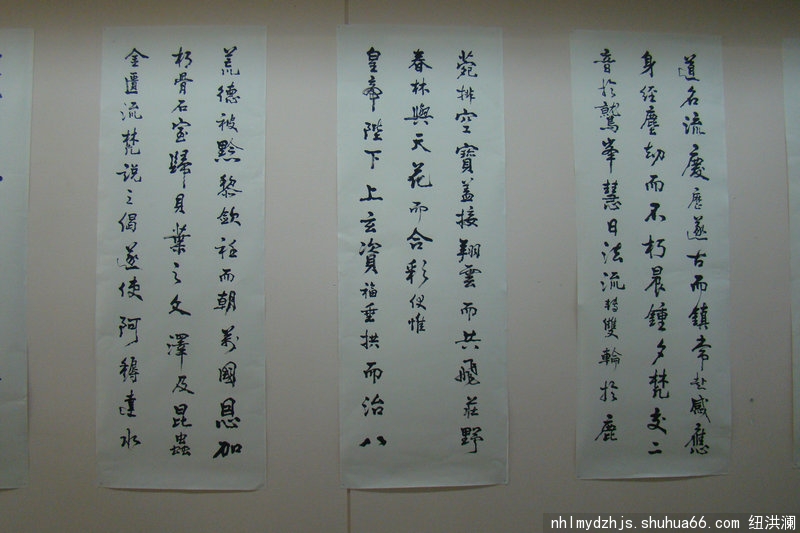 道名流慶歷遂古而鎮常赴感應
身經塵劫而不朽晨鍾夕梵交二
音於鷲峯慧日法流轉雙輪於鹿
菀排空寶蓋接翔雲而共飛莊野
春林與天花而合彩伏惟
皇帝陛下上玄資福垂拱而治八
荒德被黔黎斂衽而朝萬國恩加
朽骨石室歸貝葉之文澤及昆蟲
金匱流梵說之偈遂使阿耨達水
nhlmydzhjs.shuhua66.com 纽洪澜